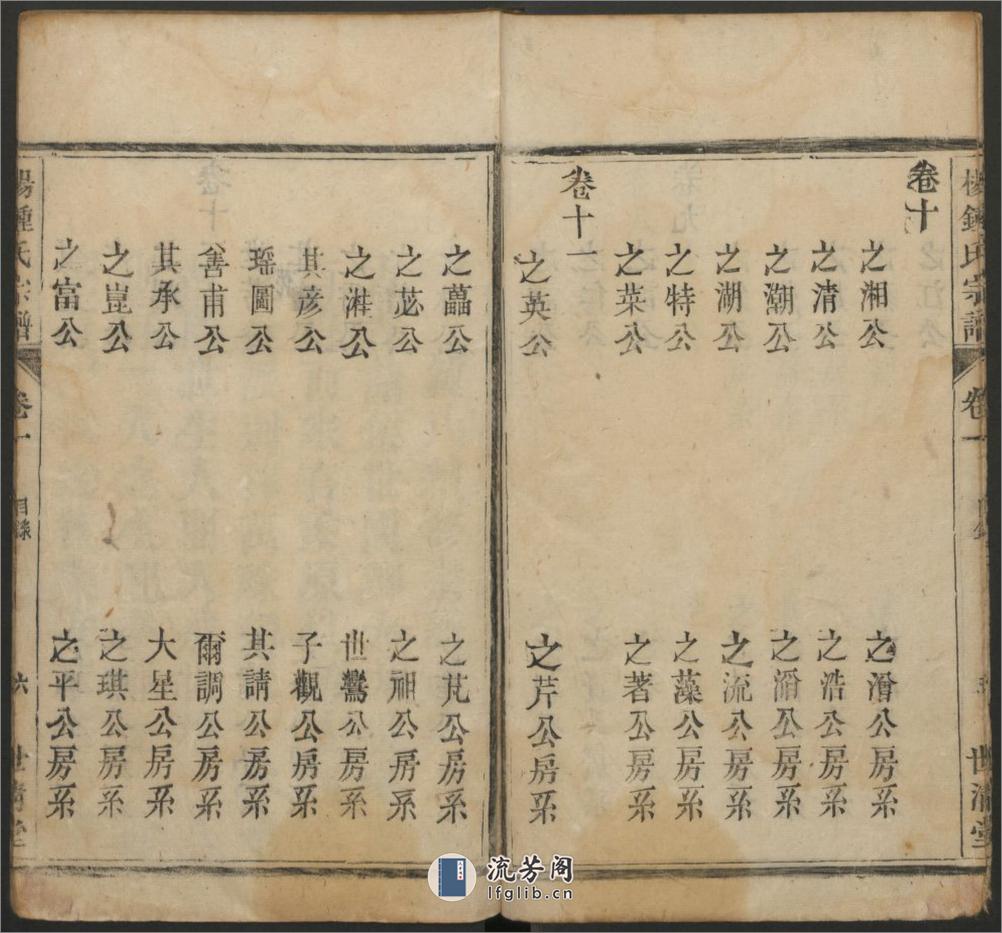 卷十
之湘公 之㵝公房系
之清公 之浩公房系
之潮公 之㴠公房系
之湖公 之流公房系
之特公 之藻公房系
之菜公 之著公房系
卷十一
之英公 之芹公房系
之藟公 之芃公房系
之苾公 之祖公房系
之溎公 世鸞公房系
其彥公 子觀公房系
瑶圖公 其請公房系
善甫公 爾調公房系
其承公 大星公房系
之崑公 之琪公房系
之富公 之平公房系
鍾氏宗譜 卷一 目錄 六 世清堂
流芳阁
lfglib.cn